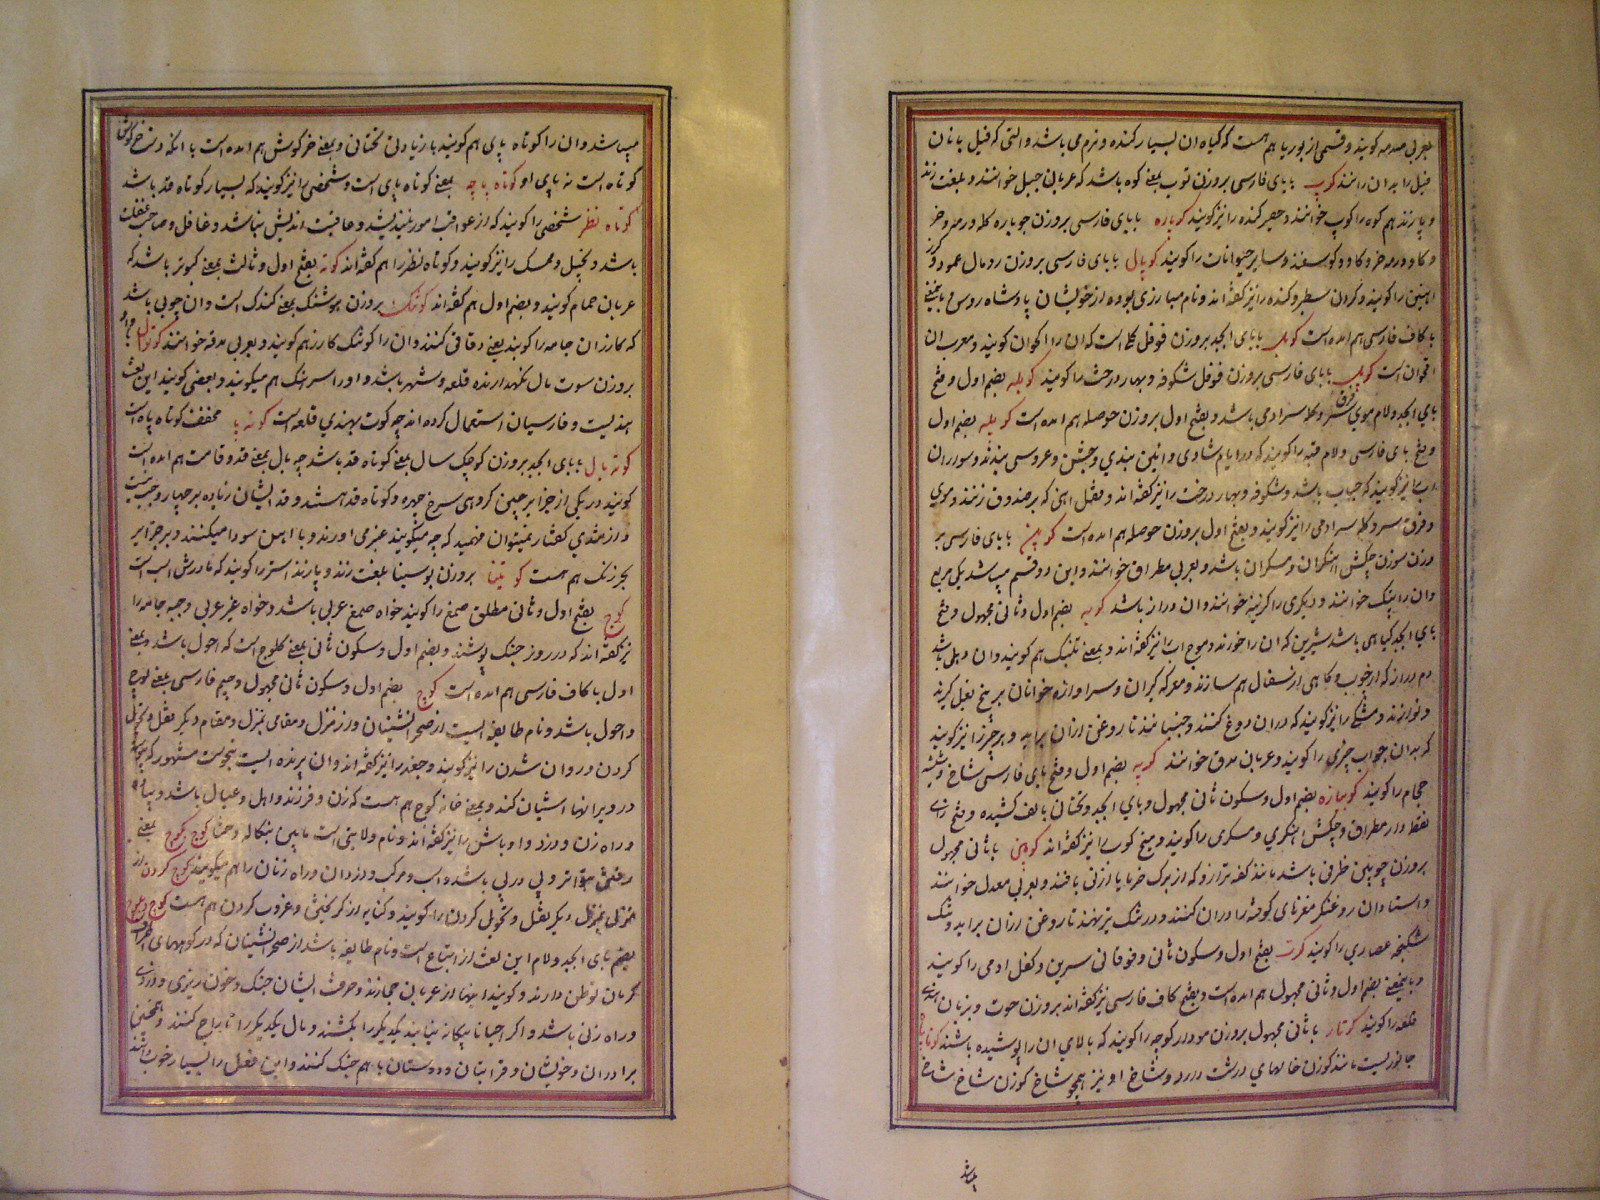 بعربی صدمه کویند و قسمی از بوریا هم هست که کیاه ان بسیار کنده و نرم می باشد والتی که فیل بانان
فیل را بدان رانند کوپ با بای فارسی بروزن توپ بمعنی کوه باشد که عربان جبل خوانند و بلغت زند
و پازند هم کوه را کوپ خوانند و حصیر کنده را نیز کویند کوپاره با بای فارسی بروزن جوپاره کله و رمه خر
و کاو و رمه خر و کاو و کوسفند و سایر حیوانات را کویند کوپال با بای فارسی بروزن رومال عمود و کرز
اهنین را کویند و کردن سطبر و کنده را نیز کفته اند و نام مبارزی بوده از خویشان پادشاه روس و باینمعنی
با کاف فارسی هم امده است کوبل با بای ابجد بروزن فوفل کلی است که ان را اکوان کویند و معرب ان
اقحوان است کوپل با بای فارسی بروزن فوفل شکوفه و بهار درخت را کویند کوبله بضم اول و فتح
بای ابجد و لام موی فرق سر و کله سر ادمی باشد و بفتح اول بروزن حوصله هم امده است کوپله بضم اول
و فتح بای فارسی و لام قبه را کویند که در ایام شادی و ائین بندی و جشن و عروسی بندند و سوار ان
اب را نیز کویند که حباب باشد و شکوفه و بهار درخت را نیز کفته اند و قفل اهنی که بر صندوق زنند و موی
و فرق سر و کله سر ادمی را نیز کویند و بفتح اول بروزن حوصله هم امده است کوپین با بای فارسی بر
وزن سوزن چکش اهنکران و مسکران باشد و بعربی مطراق خوانند و این دو قسم میباشد یکی مربع
وان را پتک خوانند و دیکری را کزینه خوانند وان دراز باشد کوبه بضم اول و ثانی مجهول و فتح
بای ابجد کیاهی باشد شیرین که ان را خورند و موج اب را نیز کفته اند و بمعنی تنبک هم کویند وان دهلی باشد
دم دراز که از چوب و کاهی از سفال هم سازند و معرکه کیران و سرا وازه خوانان بر بیخ بغل کیرند
و نوازند و مشکی را نیز کویند که دران دوغ کنند و جنبانند تا روغن ازان براید و هر چیز را نیز کویند
که بدان چیزی را کوبند و عربان مدق خوانند کوپه بضم اول و فتح بای فارسی شاخ و شیشه
حجام را کویند کوبیازه بضم اول و سکون ثانی مجهول و بای ابجد و تحتانی بالف کشیده و فتح زای
نقطه دار مطراق و چکش اهنکری و مسکری را کویند و میخ کوب را نیز کفته اند کوبین با ثانی مجهول
بروزن چوبین ظرفی باشد مانند کفه ترازو که از برک خرما یا از نی بافند و بعربی معدل خوانند
و استادان روغنکر مغزهای کوفته را دران کنند و در تنک تیر نهند تا روغن ازان براید و تنک
شکنجه عصاری را کویند کوت بفتح اول و سکون ثانی و فوقانی سرین و کفل ادمی را کویند
و باینمعنی بضم اول و ثانی مجهول هم امده است و بفتح کاف فارسی نیز کفته اند بروزن حوت و بزبان هندی
قلعه را کویند کوتار با ثانی مجهول بروزن مودار کوچه را کویند که بالای ان را پوشیده باشند کوتاه پا
جانوریست مانند کوزن خالهای درشت دارد و شاخ او نیز همچو شاخ کوزن شاخ شاخ
میباشد
میباشد وان را کوتاه پای هم کویند با زیادتی تحتانی و بمعنی خرکوش هم امده است با انکه دست خرکوش
کوتاه است نه پای او کوتاه پاچه بمعنی کوتاه پای است و شخصی را نیز کویند که بسیار کوتاه قد باشد
کوتاه نظر شخصی را کویند که از عواقب امور نیندیشد و عاقبت اندیش نباشد و غافل و صاحب غفلت
باشد و بخیل و ممسک را نیز کویند و کوتاه نظر را هم کفته اند کوتر بفتح اول و ثالث بمعنی کبوتر باشد که
عربان حمام کویند و بضم اول هم کفته اند کوتنک بروزن هوشنک بمعنی کدنک است وان چوبی باشد
که کازران جامه را کوبند یعنی دقاقی کنند وان را کوتنک کازر هم کویند و بعربی مدقه خوانند کوتوال با واو
بروزن سوت مال نکهدارنده قلعه و شهر باشد و او را سرهنک هم میکویند و بعضی کویند این لغت
هندیست و فارسیان استعمال کرده اند چه کوت بهندی قلعه است کوته پا مخفف کوتاه پا است
کوته بال با بای ابجد بروزن کوچک سال بمعنی کوتاه قد باشد چه بال بمعنی قد و قامت هم امده است
کویند در یکی از جزایر چین کروهی سرخ چهره و کوتاه قد هستند و قد ایشان زیاده بر چهار وجب نیست
و از تندی کفتار نمیتوان فهمید که چه میکویند عنبر می اورند و با اهن سودا میکنند و بر جزایر
بحر زنک هم هست کوتینا بروزن بوسینا بلغت زند و پازند استر را کویند که مادرش اسب است
کوج بفتح اول و ثانی مطلق صمغ را کویند خواه صمغ عربی باشد و خواه غیر عربی و جبه جامه را
نیز کفته اند که در روز جنک پوشند و بضم اول و سکون ثانی بمعنی کلوج است که احول باشد و بمعنی
اول با کاف فارسی هم امده است کوچ بضم اول و سکون ثانی مجهول و جیم فارسی بمعنی لوچ
و احول باشد و نام طایفه ایست از صحرانشینان و از منزل و مقامی بمنزل و مقام دیکر نقل و تحویل
کردن و روان شدن را نیز کویند و جغد را نیز کفته اند وان پرنده ایست بنحوست مشهور که پیوسته
در ویرانها اشیان کند و بمعنی خانه کوچ هم هست که زن و فرزند و اهل و عیال باشد و پیاده
و راه زن و دزد و اوباش را نیز کفته اند و نام ولایتی است مابین بنکاله و ختا کوچ کوچ بمعنی
رفتن متواتر و پی در پی باشد و اسب و مرکب و دزدان و راه زنان را هم میکویند کوچ کردن از
منزلی بمنزل دیکر نقل و تحویل کردن را کویند و کنایه از کریختن و غروب کردن هم هست کوچ و بلوچ
بضم بای ابجد و لام این لغت از اتباع است و نام طایفه باشد از صحرانشینان که در کوههای اطراف
کرمان توطن دارند و کویند اینها از عربان حجازند و حرفت ایشان جنک و خون ریزی و دزدی
و راه زنی باشد و اکر احیانا بیکانه نیابند یکدیکر را بکشند و مال یکدیکر را تاراج کنند و همچنین
برادران و خویشان و قرابتان و دوستان با هم جنک کنند و این فعل را بسیار خوب دانند